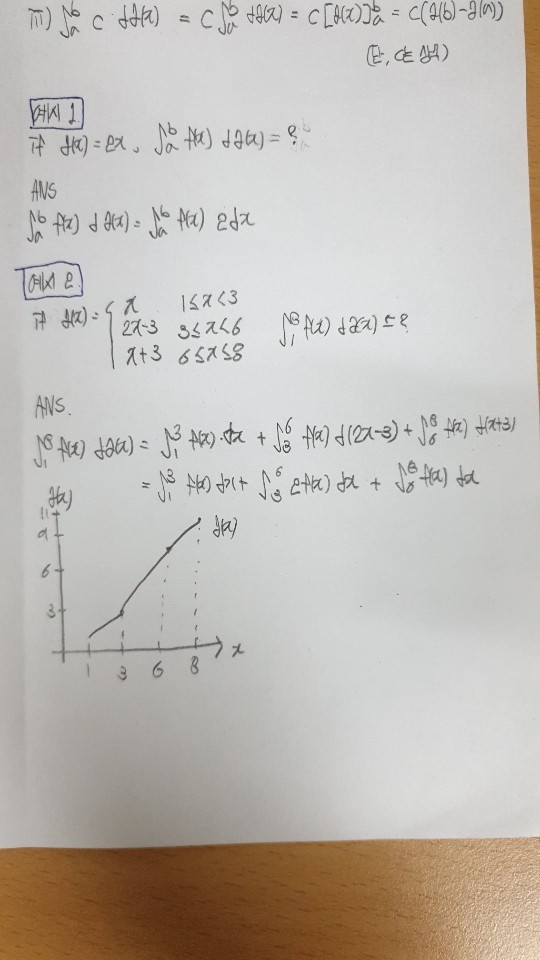 iii) ∫ₐᵇ c dg(x) = c∫ₐᵇ dg(x) = c[g(x)]ₐᵇ = c(g(b)-g(a))
(단, c는 상수)
예시 1
if g(x)=2x, ∫ₐᵇ f(x) dg(x)=?
ANS
∫ₐᵇ f(x) dg(x)=∫ₐᵇ f(x) 2dx
예시 2.
if g(x)= { x 1≤x<3
2x-3 3≤x<6 ∫₁⁸ f(x) dg(x)=?
x+3 6≤x≤8
ANS.
∫₁⁸ f(x) dg(x) = ∫₁³ f(x)·dx + ∫₃⁶ f(x) d(2x-3) + ∫₆⁸ f(x) d(x+3)
= ∫₁³ f(x) dx + ∫₃⁶ 2f(x) dx + ∫₆⁸ f(x) dx
g(x)
11
9 g(x)
6
3
x
1 3 6 8